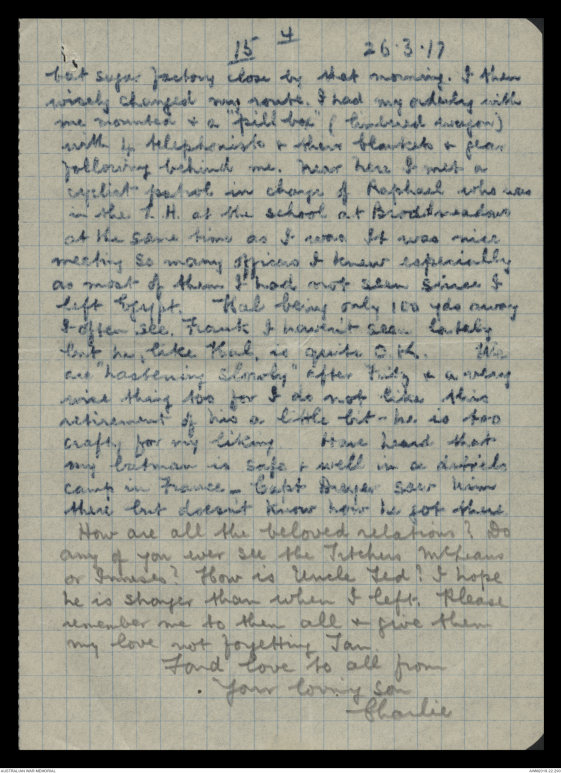 15 4 26.3.17
but sugar factory close by that morning. I then
wisely changed my route. I had my orderly with
me mounted & a "pill box" (limbered wagon)
with 4 telephonists & their blankets & gear
following behind me. Near here I met a
cyclist patrol in charge of Raphael who was
in the L.H. at the school at Broadmeadows
at the same time as I was. It was nice
meeting so many officers I knew especially
as most of them I had not seen since I
left Egypt. Hal being only 100 yds away
I often see. Frank I haven't seen lately
but he, like Hal, is quite O.K. We
are "hastening slowly" after Fritz & a very
wise thing too for I do not like this
retirement of his a little bit - he is too
crafty for my liking. Have heard that
my batman is safe & well in a details
camp in France - Capt Dreyer saw him
there but doesn't know how he got there
How are all the beloved relations? Do
any of you ever see the Titchers McLeans
or Inneses? How is Uncle Ted? I hope
he is stronger than when I left. Please
remember me to them all & give them
my love not forgetting Ian.
Fond love to all from
Your loving son
Charlie
AUSTRALIAN WAR MEMORIAL